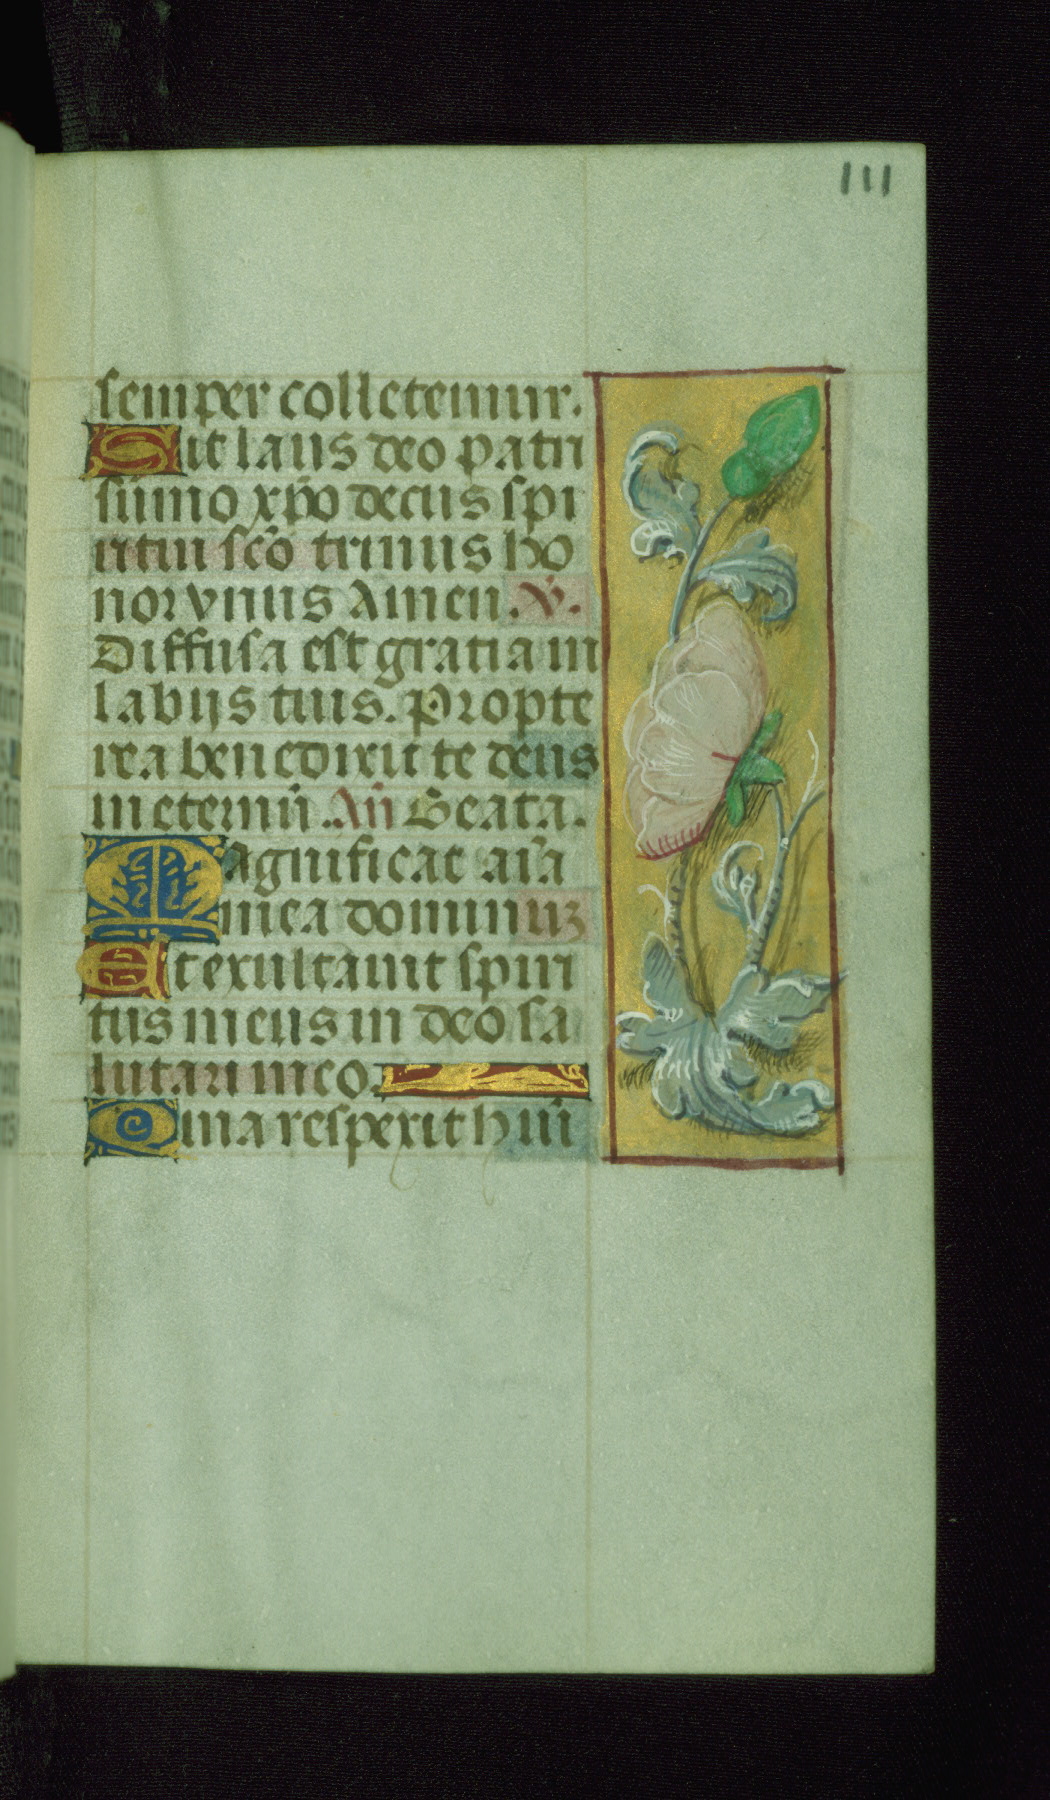 111
semper colletemur.
Sit laus deo patri
summo xp̄o decus spi
ritui sc̄o trinus ho
nor vnus Amen. V̄.
Diffusa est gratia in
labijs tuis. Propte
rea benedixit te deus
in eternū. An̄ Beata.
Magnificat aīa
mea dominuʒ
Et exultauit spiri
tus meus in deo sa
lutari meo.
Quia respexit hūi